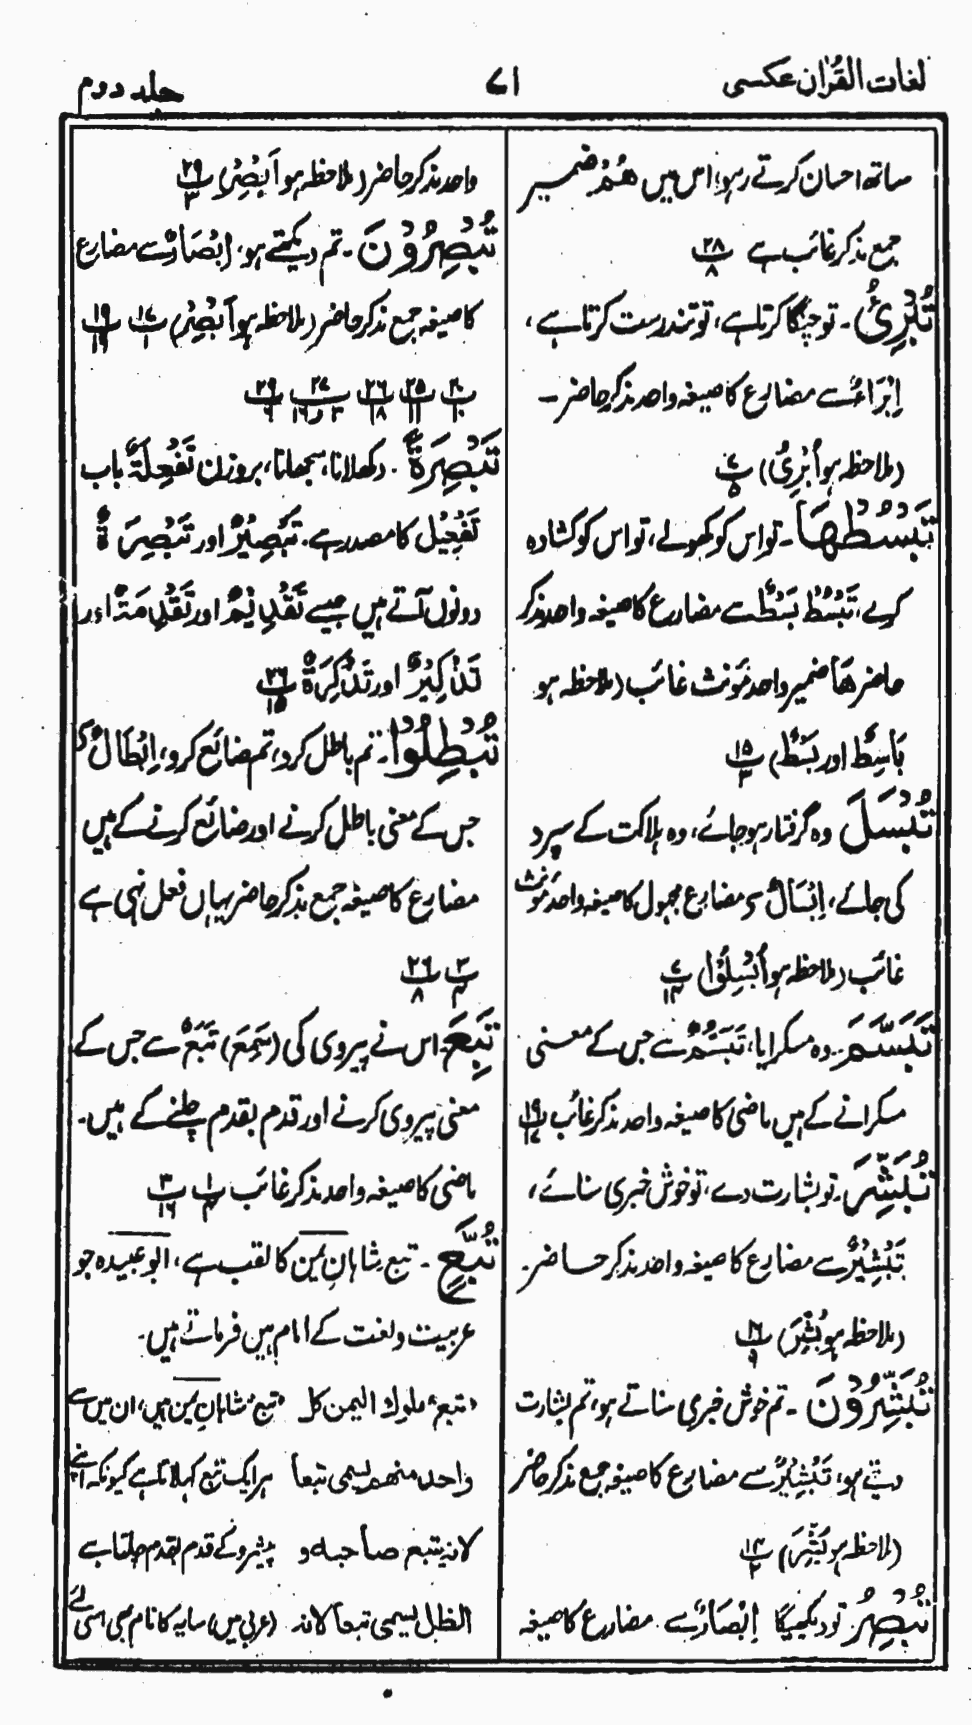 لغات القرآن عکسی
۷۱
جلد دوم
ساتھ احسان کرتے رہو، اس میں ھُمْ ضمیر
جمع مذکر غائب ہے ۲۸/۸
تُبْرِئُ۔ تو چنگا کرتا ہے، تو تندرست کرتا ہے،
اِبْرَاءٌ سے مضارع کا صیغہ واحد مذکر حاضر۔
(ملاحظہ ہو اُبْرِئُ) ۷/۵
تَبْسُطْهَا۔ تو اس کو کھولے، تو اس کو کشادہ
کرے، تَبْسُطْ بَسْطٌ سے مضارع کا صیغہ واحد مذکر
حاضر ھَا ضمیر واحد مؤنث غائب (ملاحظہ ہو
بَاسِطٌ اور بَسْطٌ) ۱۵/۳
تُبْسَلَ وہ گرفتار ہو جائے، وہ ہلاکت کے سپرد
کی جائے، اِبْسَالٌ سے مضارع مجہول کا صیغہ واحد مؤنث
غائب (ملاحظہ ہو اُبْسِلُوْا) ۷/۱۴
تَبَسَّمَ۔ وہ مسکرایا، تَبَسُّمٌ سے جس کے معنی
مسکرانے کے ہیں ماضی کا صیغہ واحد مذکر غائب ۱۹/۱۷
تُبَشِّرَ۔ تو بشارت دے، تو خوش خبری سنائے،
تَبْشِیْرٌ سے مضارع کا صیغہ واحد مذکر حاضر۔
(ملاحظہ ہو بُشِّرَ) ۱۶/۹
تُبَشِّرُوْنَ۔ تم خوش خبری سناتے ہو، تم بشارت
دیتے ہو، تَبْشِیْرٌ سے مضارع کا صیغہ جمع مذکر حاضر
(ملاحظہ ہو بُشِّرَ) ۱۴/۴
تُبْصِرُ تو دیکھیگا اِبْصَارٌ سے مضارع کا صیغہ
واحد مذکر حاضر (ملاحظہ ہو اَبْصِرْ) ۲۹/۳
تُبْصِرُوْنَ۔ تم دیکھتے ہو، اِبْصَارٌ سے مضارع
کا صیغہ جمع مذکر حاضر (ملاحظہ ہو اَبْصِرْ) ۱۷/۱ ۱۹/۱۹
۲۰/۱۰ ۲۵/۱۱ ۲۶/۱۸ ۲۷/۳ و ۱۶ ۲۹/۶
تَبْصِرَةً۔ دکھلانا، سجھانا، بروزن تَفْعِلَةٌ باب
تَفْعِیْل کا مصدر ہے۔ تَبْصِیْرٌ اور تَبْصِرَةٌ
دونوں آتے ہیں جیسے تَقْدِیْمٌ اور تَقْدِمَةٌ اور
تَذْکِیْرٌ اور تَذْکِرَةٌ ۲۶/۱۵
تُبْطِلُوْا۔ تم باطل کرو، تم ضائع کرو، اِبْطَالٌ سے
جس کے معنی باطل کرنے اور ضائع کرنے کے ہیں
مضارع کا صیغہ جمع مذکر حاضر یہاں فعل نہی ہے
۳/۴ ۲۶/۸
تَبِعَ۔ اس نے پیروی کی (سَمِعَ) تَبَعٌ سے جس کے
معنی پیروی کرنے اور قدم بقدم چلنے کے ہیں۔
ماضی کا صیغہ واحد مذکر غائب ۱/۴ ۳/۱۶
تُبَّعٍ۔ تبع شاہانِ یمن کا لقب ہے، ابو عبیدہ جو
عربیت و لغت کے امام ہیں فرماتے ہیں۔
"تبع" ملوك اليمن كل "تبع" شاہانِ یمن ہیں، ان میں سے
واحد منهم يسمى تبعا ہر ایک تبع کہلاتا ہے کیونکہ اپنے
لانه يتبع صاحبه و پیشرو کے قدم بقدم چلتا ہے
الظل يسمى تبعا لانه (عربی میں) سایہ کا نام بھی اسی لئے